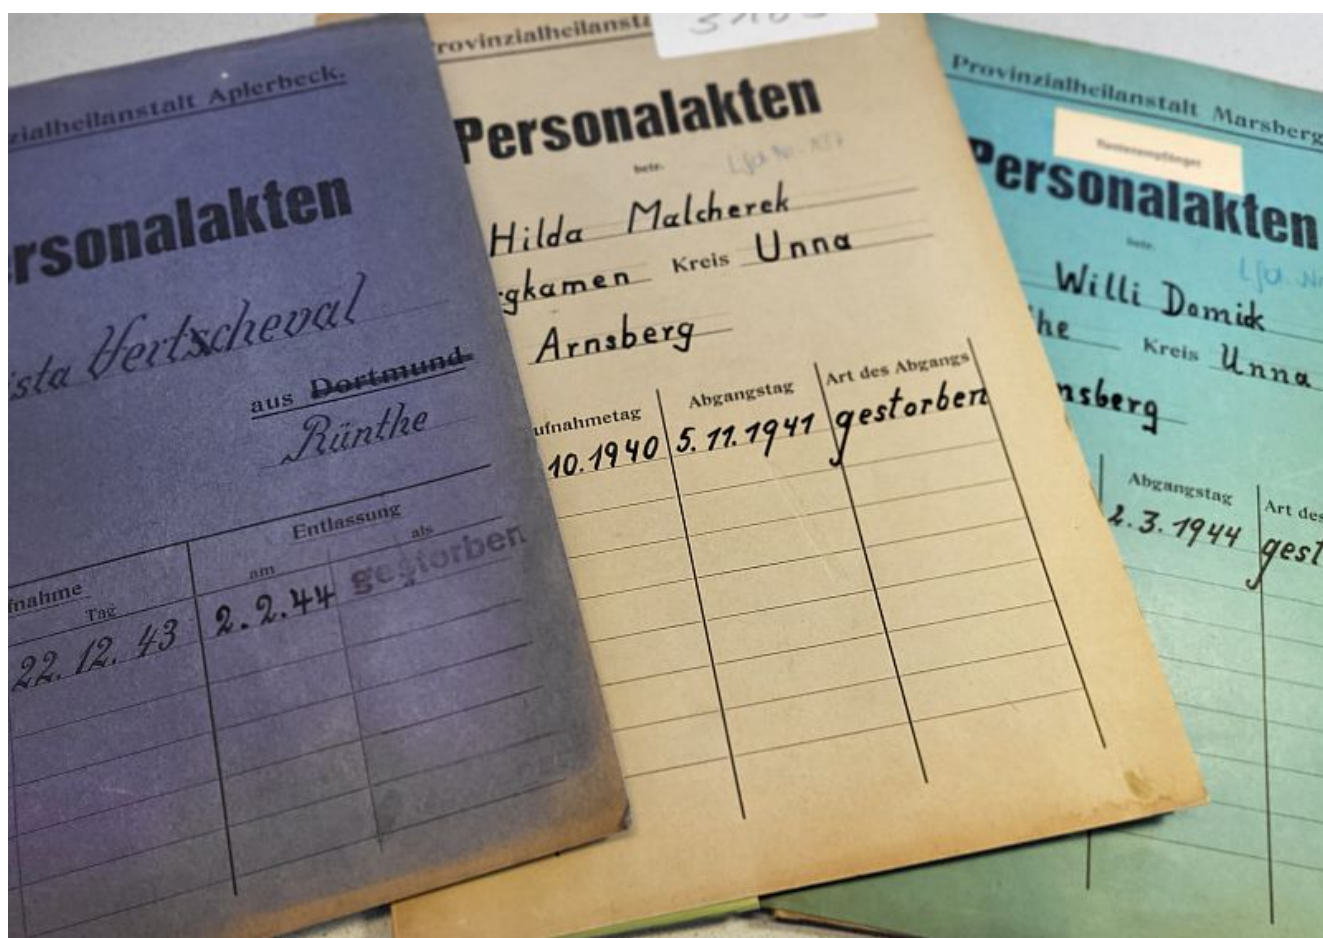 zialheilanstalt Aplerbeck.
rsonalakten
sta Vertscheval
aus Dortmund
Rünthe
fnahme
Entlassung
Tag
am
als
22. 12. 43
2. 2. 44
gestorben
rovinzialheilansta
Personalakten
betr.
Lfd. Nr. 157
Hilda Malcherek
gkamen Kreis Unna
Arnsberg
ufnahmetag
Abgangstag
Art des Abgangs
10. 1940
5. 11. 1941
gestorben
Provinzialheilanstalt Marsberg
Rentenempfänger
Personalakten
betr.
Lfd. Nr
Willi Domik
he Kreis Unna
nsberg
Abgangstag
Art des
2. 3. 1944
gest